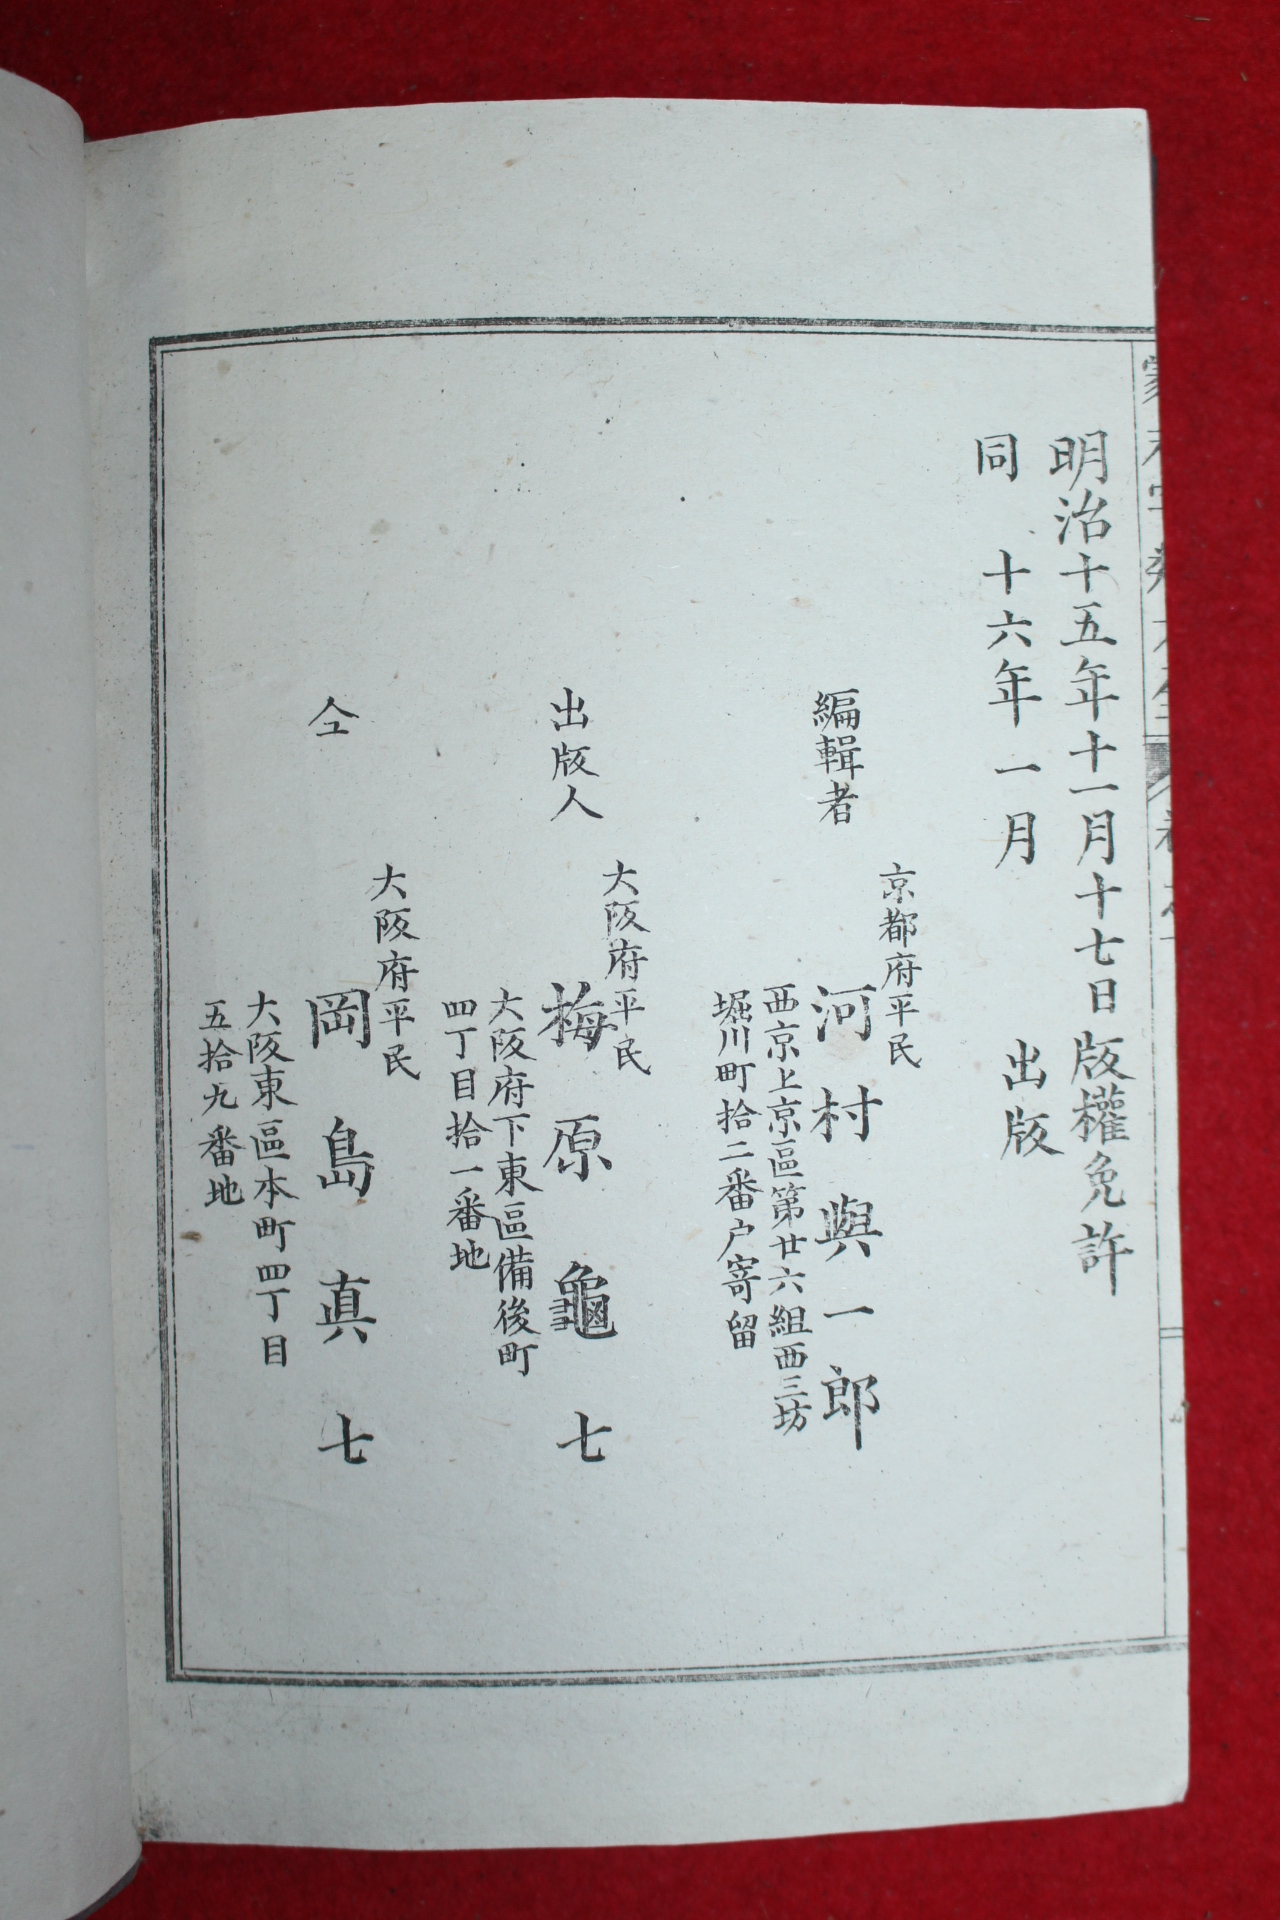 明治十五年十一月十七日版權免許
同　十六年一月　出版
編輯者
京都府平民
河村與一郎
西京上京區第廿六組西三坊
堀川町拾二番户寄留
出版人
大阪府平民
梅原龜七
大阪府下東區備後町
四丁目拾一番地
仝
大阪府平民
岡島真七
大阪東區本町四丁目
五拾九番地